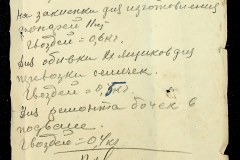 на закиепка для изготовления
фонарей 11м
Гвоздей = 0,6кг.
Для обивки ящиков для
перевозки семечек.
Гвоздей = 0,5кг
Для ремонта бочек в
подвале.
Гвоздей = 0,4кг